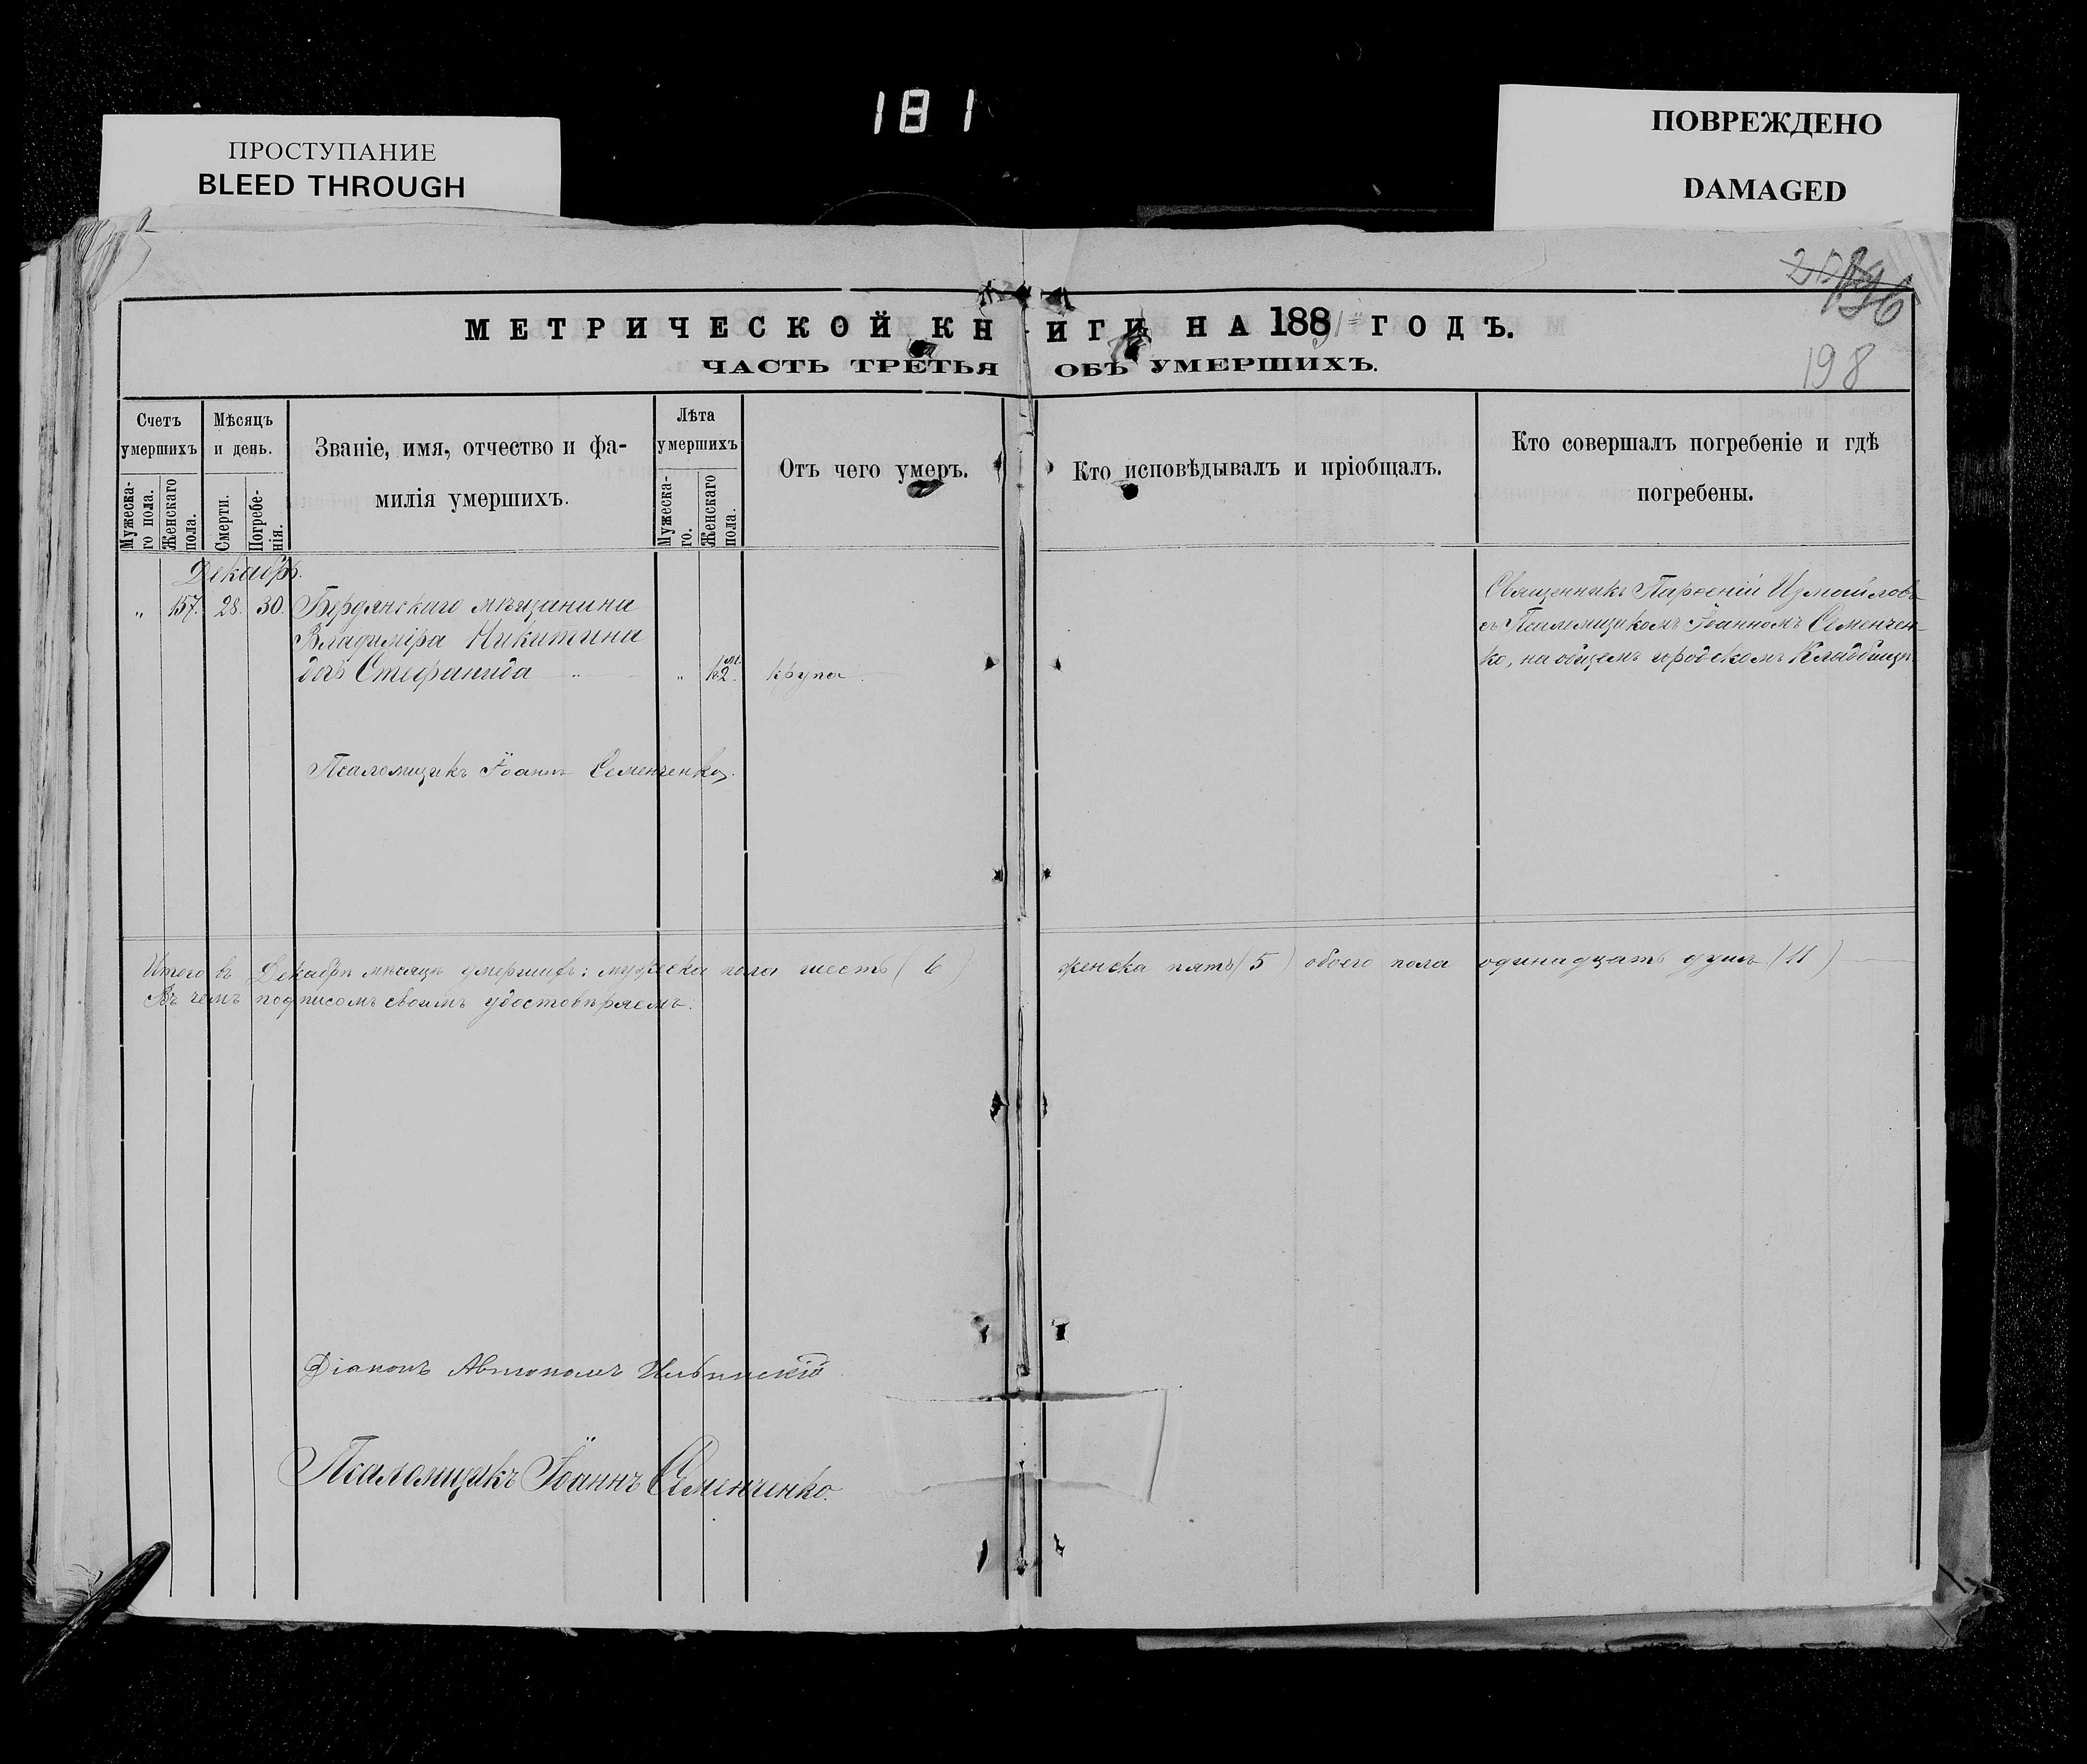 181
ПРОСТУПАНИЕ
BLEED THROUGH
ПОВРЕЖДЕНО
DAMAGED
196
198
МЕТРИЧЕСКОЙ КНИГИ НА 1881 ГОДЪ.
ЧАСТЬ ТРЕТЬЯ ОБЪ УМЕРШИХЪ.
Счетъ умершихъ
Мужеска-
го пола.
Женскаго
пола.
Мѣсяцъ
и день.
Смерти.
Погребе-
нія.
Званіе, имя, отчество и фа-
милія умершихъ.
Лѣта
умершихъ
Мужеска-
го.
Женскаго
пола.
Отъ чего умеръ.
Кто исповѣдывалъ и пріобщалъ.
Кто совершалъ погребеніе и гдѣ
погребены.
Декабрь.
„ 157. 28. 30. Бердянскаго мѣщанина
Владиміра Никитина
дочь Стефанида „ 2 м. крупа
Священникъ Парѳеній Измайловъ
съ Псаломщикомъ Іоанномъ Семенчен-
ко, на общемъ городскомъ Кладбищѣ.
Псаломщикъ Іоаннъ Семенченко.
Итого въ Декабрѣ мѣсяцѣ умершихъ: мужеска пола шесть (6) женска пять (5) обоего пола одинадцать душъ (11)
Въ чемъ подписомъ своимъ удостовѣряемъ:
Діаконъ Автономъ Ильинскій
Псаломщикъ Іоаннъ Семенченко.